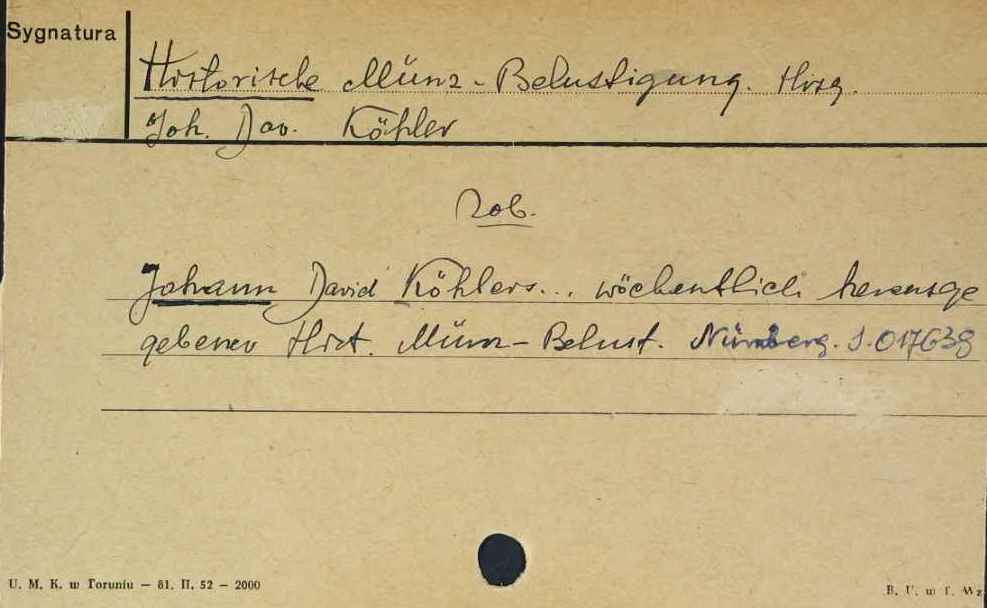 Sygnatura
Historische Münz-Belustigung. Hrsg.
Joh. Dav. Köhler
Zob.
Johann David Köhlers... wöchentlich herausge
gebener Hist. Münz-Belust. Nürnberg. S.017638
U. M. K. w Toruniu — 81. II. 52 — 2000
B. U. w T. Wz